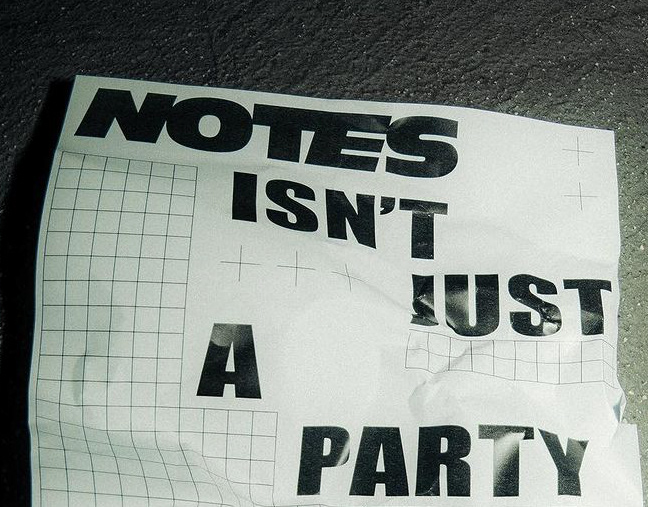 NOTES
ISN'T
JUST
A
PARTY